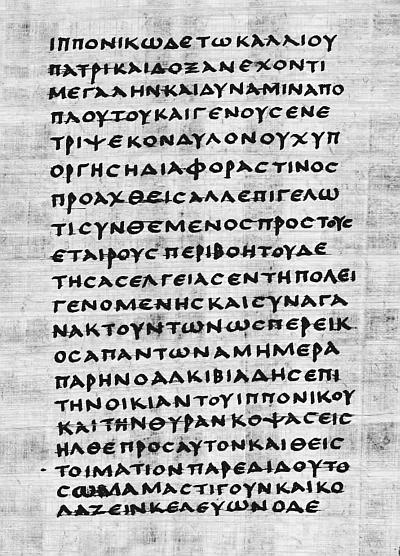 ΙΠΠΟΝΙΚΩΔΕΤΩΚΑΛΛΙΟΥ
ΠΑΤΡΙΚΑΙΔΟΞΑΝΕΧΟΝΤΙ
ΜΕΓΑΛΗΝΚΑΙΔΥΝΑΜΙΝΑΠΟ
ΠΛΟΥΤΟΥΚΑΙΓΕΝΟΥϹΕΝΕ
ΤΡΙΨΕΚΟΝΔΥΛΟΝΟΥΧΥΠ
ΟΡΓΗϹΗΔΙΑΦΟΡΑϹΤΙΝΟϹ
ΠΡΟΑΧΘΕΙϹΑΛΛΕΠΙΓΕΛΩ
ΤΙϹΥΝΘΕΜΕΝΟϹΠΡΟϹΤΟΥϹ
ΕΤΑΙΡΟΥϹΠΕΡΙΒΟΗΤΟΥΔΕ
ΤΗϹΑϹΕΛΓΕΙΑϹΕΝΤΗΠΟΛΕΙ
ΓΕΝΟΜΕΝΗϹΚΑΙϹΥΝΑΓΑ
ΝΑΚΤΟΥΝΤΩΝΩϹΠΕΡΕΙΚ
ΟϹΑΠΑΝΤΩΝΑΜΗΜΕΡΑ
ΠΑΡΗΝΟΑΛΚΙΒΙΑΔΗϹΕΠΙ
ΤΗΝΟΙΚΙΑΝΤΟΥΙΠΠΟΝΙΚΟΥ
ΚΑΙΤΗΝΘΥΡΑΝΚΟΨΑϹΕΙϹ
ΗΛΘΕΠΡΟϹΑΥΤΟΝΚΑΙΘΕΙϹ
ΤΟΙΜΑΤΙΟΝΠΑΡΕΔΙΔΟΥΤΟ
ϹΩΜΑΜΑϹΤΙΓΟΥΝΚΑΙΚΟ
ΛΑΖΕΙΝΚΕΛΕΥΩΝΟΔΕ